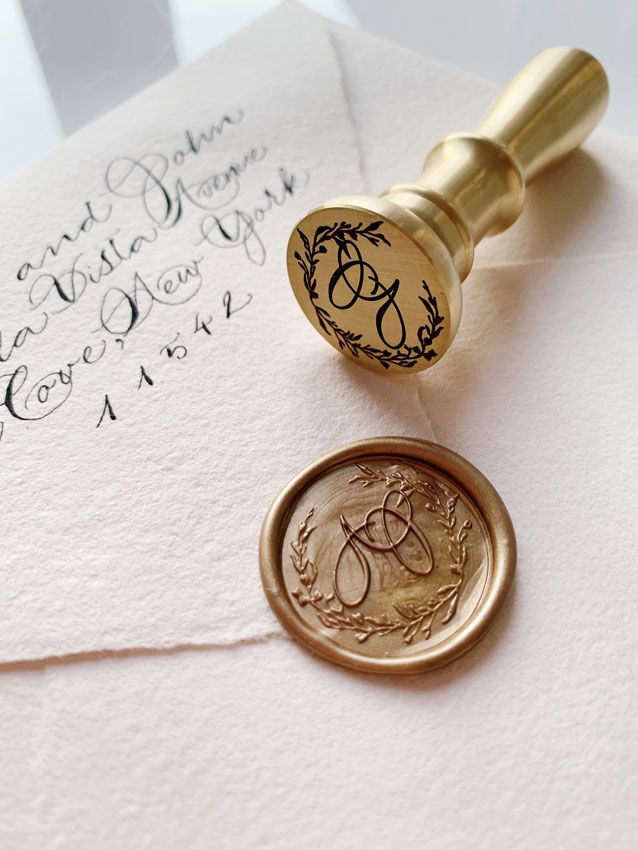 and John
Vista Avenue
Cove, New York
11542